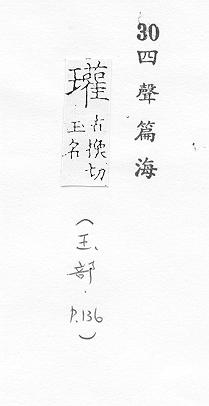 30
四聲篇海
瓘
古換切
玉名
(玉部. P.136)